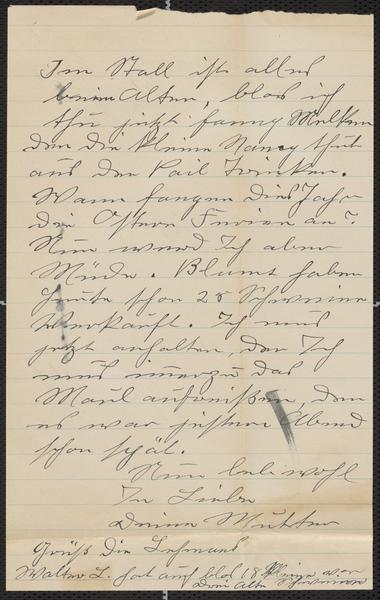 Im Stall ist alles
beim Alten, blos ich
thu jetzt fanny Melken
den die kleine Nancy thut
aus den Pail Trinken.
Wann fangen dies Jahr
die Ostern Ferien an?
Nun werd Ich aber
Müde. Blumt haben
heute schon 25 Schweine
Verkauft. Ich mus
jetzt anhalten, den Ich
mus immerzu das
Maul aufreißen, den
es war gestern Abend
schon spät.
Nun lebe wohl
In Liebe
Deine Mutter
Grüß die Lehmans
Walter L. hat auch blos 18 kleine von
Drei Alte Schweine